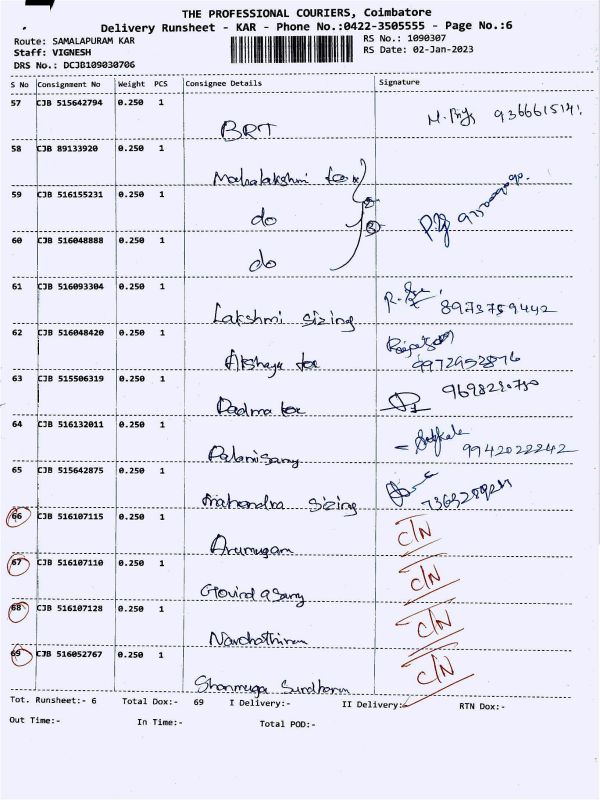 THE PROFESSIONAL COURIERS, Coimbatore
Delivery Runsheet - KAR - Phone No.:0422-3505555 - Page No.:6
Route: SAMALAPURAM KAR
RS No.: 1090307
Staff: VIGNESH
RS Date: 02-Jan-2023
DRS No.: DCJB109030706
S No Consignment No Weight PCS Consignee Details Signature
57 CJB 515642794 0.250 1 BRT
58 CJB 89133920 0.250 1 Mahalakshmi tex
59 CJB 516155231 0.250 1 do
60 CJB 516048888 0.250 1 do
61 CJB 516093304 0.250 1 Lakshmi sizing 8973759442
62 CJB 516048420 0.250 1 Akshaya tex
63 CJB 515506319 0.250 1 Padma tex
64 CJB 516132011 0.250 1 Palanisamy 9942022242
65 CJB 515642875 0.250 1 mahendra sizing
66 CJB 516107115 0.250 1 Arumugam C/N
67 CJB 516107110 0.250 1 Govindasamy C/N
68 CJB 516107128 0.250 1 C/N
69 CJB 516052767 0.250 1 Shanmuga C/N
Tot. Runsheet:- 6 Total Dox:- 69 I Delivery:- II Delivery:- RTN Dox:-
Out Time:- In Time:- Total POD:-